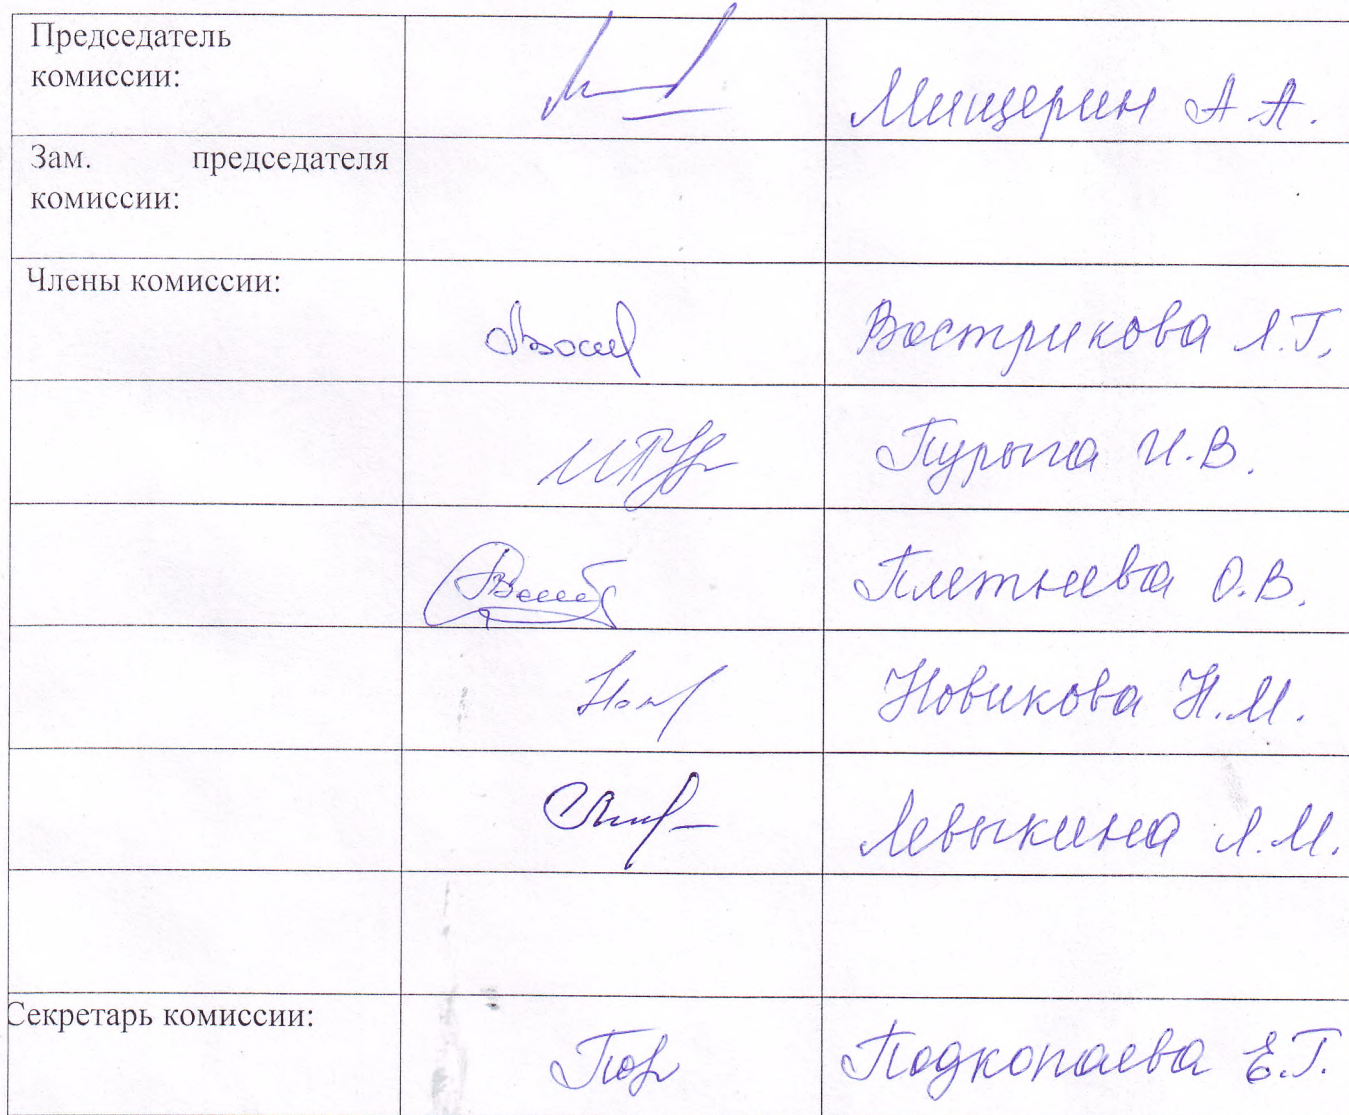 Председатель
комиссии:
Мищерин А.А.
Зам. председателя
комиссии:
Члены комиссии:
Вострикова Л.Г.
Пурыга И.В.
Плетнева О.В.
Новикова Н.М.
Левыкина Л.М.
Секретарь комиссии:
Подкопаева Е.Г.